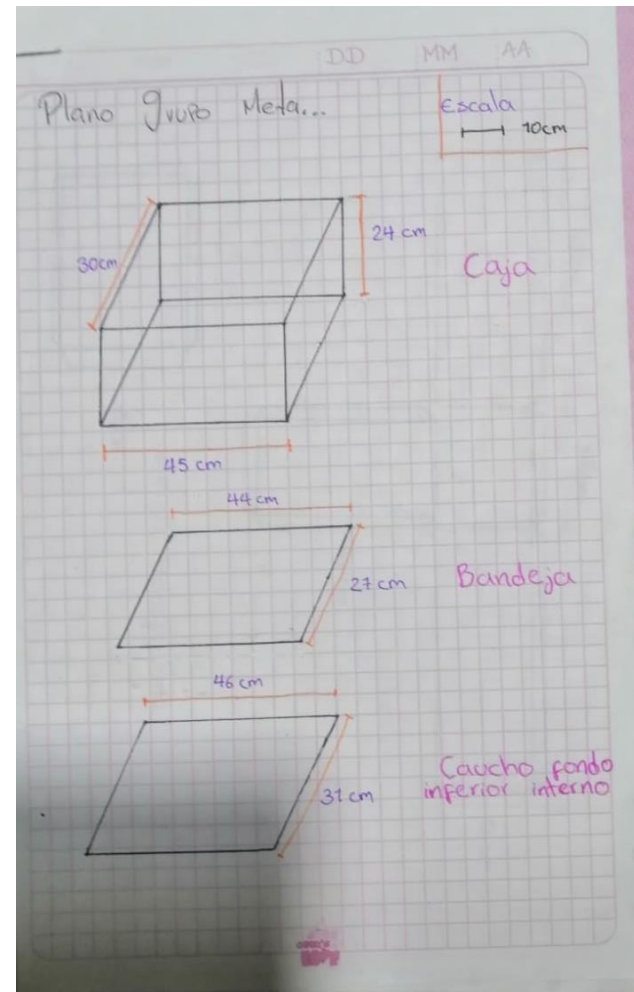 DD MM AA
Plano grupo Meta...
Escala
10cm
30cm
24 cm
Caja
45 cm
44 cm
27 cm
Bandeja
46 cm
31 cm
Caucho fondo
inferior interno